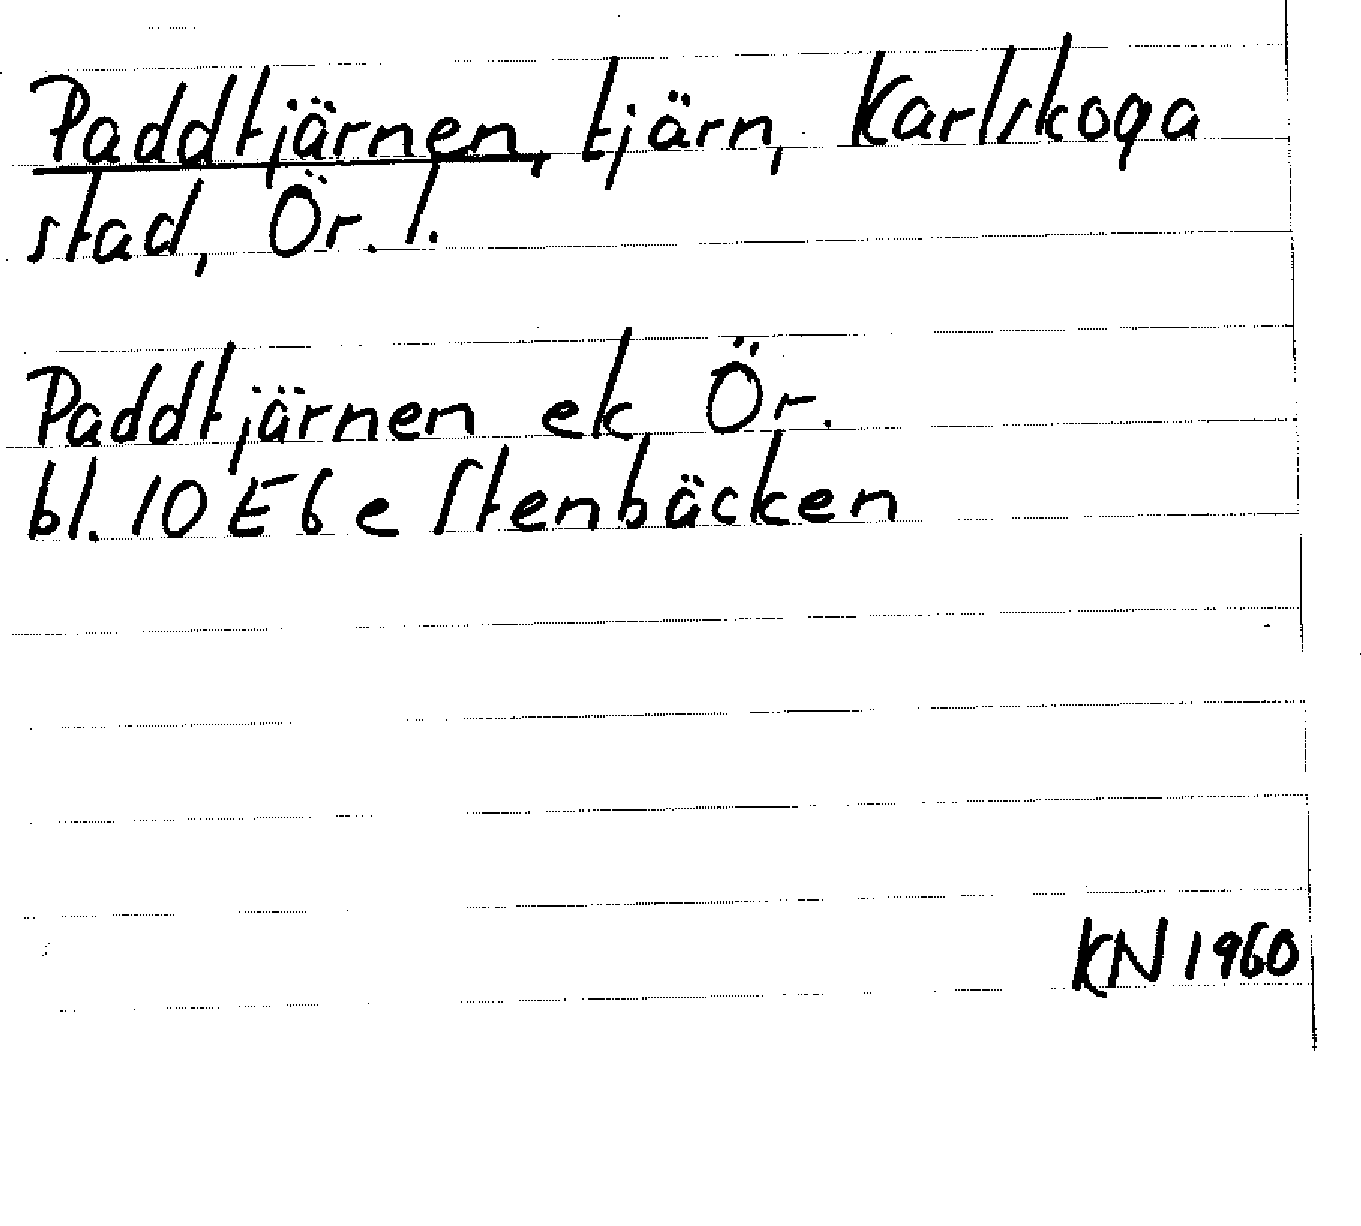 Paddtjärnen, tjärn, Karlskoga
stad, Ör. l.
Paddtjärnen ek Ör.
bl. 10 E 6 e Stenbäcken
KN 1960